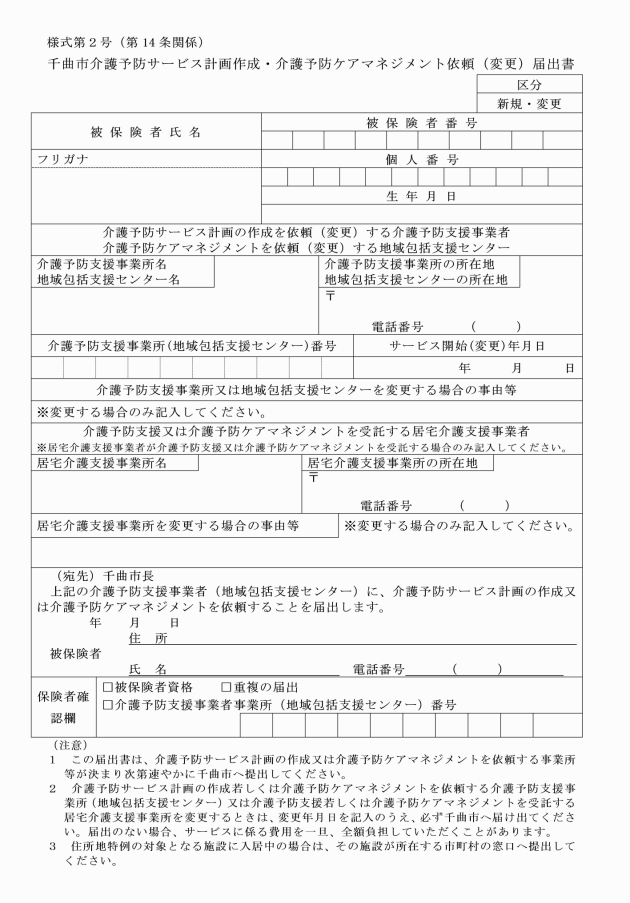 様式第２号（第14条関係）
千曲市介護予防サービス計画作成・介護予防ケアマネジメント依頼（変更）届出書
区分
新規・変更
被保険者氏名
被保険者番号
フリガナ
個人番号
生年月日
介護予防サービス計画の作成を依頼（変更）する介護予防支援事業者
介護予防ケアマネジメントを依頼（変更）する地域包括支援センター
介護予防支援事業所名
地域包括支援センター名
介護予防支援事業所の所在地
地域包括支援センターの所在地
〒
電話番号　　　（　　　）
介護予防支援事業所(地域包括支援センター)番号
サービス開始(変更)年月日
年　　月　　日
介護予防支援事業所又は地域包括支援センターを変更する場合の事由等
※変更する場合のみ記入してください。
介護予防支援又は介護予防ケアマネジメントを受託する居宅介護支援事業者
※居宅介護支援事業者が介護予防支援又は介護予防ケアマネジメントを受託する場合のみ記入してください。
居宅介護支援事業所名
居宅介護支援事業所の所在地
〒
電話番号　　　（　　　）
居宅介護支援事業所を変更する場合の事由等
※変更する場合のみ記入してください。
（宛先）千曲市長
上記の介護予防支援事業者（地域包括支援センター）に、介護予防サービス計画の作成又
は介護予防ケアマネジメントを依頼することを届出します。
年　　月　　日
住　所
被保険者
氏　名　　　　　電話番号　　　（　　　）
保険者確
認欄
□被保険者資格　　□重複の届出
□介護予防支援事業者事業所（地域包括支援センター）番号
（注意）
１　この届出書は、介護予防サービス計画の作成又は介護予防ケアマネジメントを依頼する事業所
等が決まり次第速やかに千曲市へ提出してください。
２　介護予防サービス計画作成若しくは介護予防ケアマネジメントを依頼する介護予防支援事
業所（地域包括支援センター）又は介護予防支援若しくは介護予防ケアマネジメントを受託する
居宅介護支援事業所を変更するときは、変更年月日を記入のうえ、必ず千曲市へ届け出てくださ
い。届出のない場合、サービスに係る費用を一旦、全額負担していただくことがあります。
３　住所地特例の対象となる施設に入居中の場合は、その施設が所在する市町村の窓口へ提出して
ください。